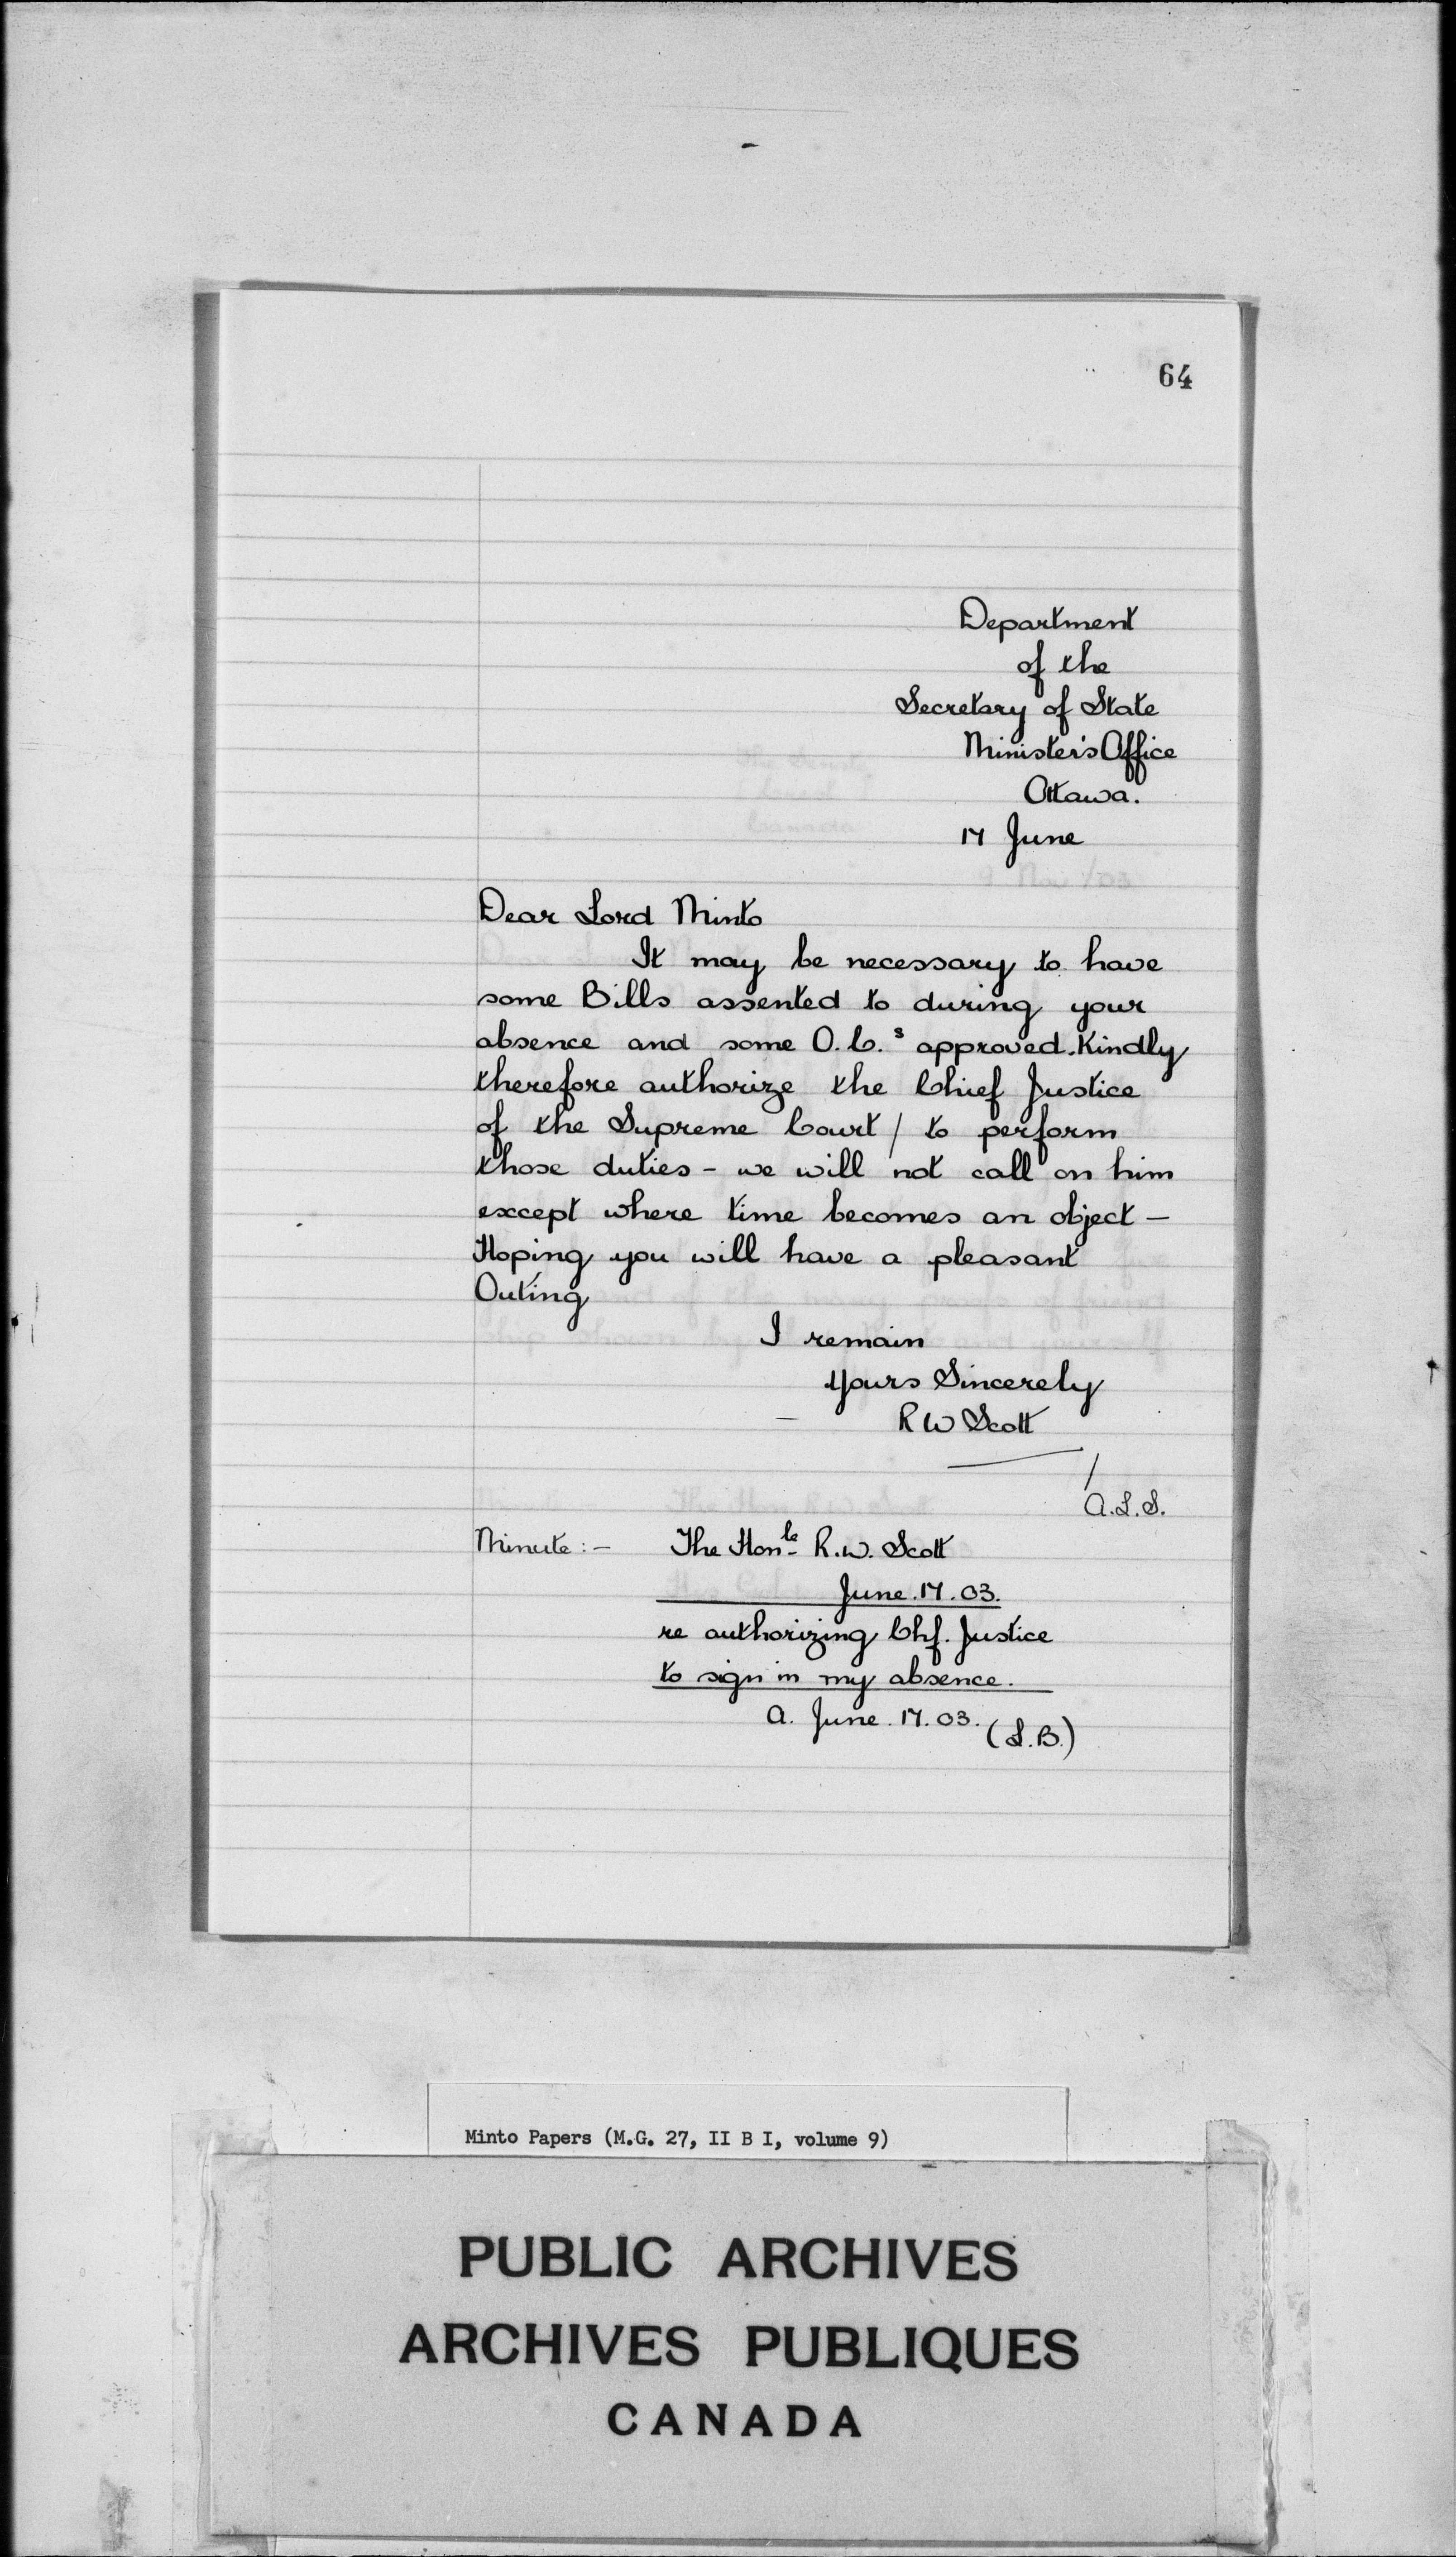 64
Department
of the
Secretary of State
Minister's Office
Ottawa.
17 June
Dear Lord Minto
It may be necessary to have
some Bills assented to during your
absence and some O.C.s approved. Kindly
therefore authorize the Chief Justice
of the Supreme Court / to perform
those duties - we will not call on him
except where time becomes an object -
Hoping you will have a pleasant
Outing
I remain
Yours Sincerely
R W Scott
A.L.S.
Minute :- The Honle R.W. Scott
June. 17. 03.
re authorizing Chf. Justice
to sign in my absence.
A. June. 17. 03. (L.B.)
Minto Papers (M.G. 27, II B I, volume 9)
PUBLIC ARCHIVES
ARCHIVES PUBLIQUES
CANADA